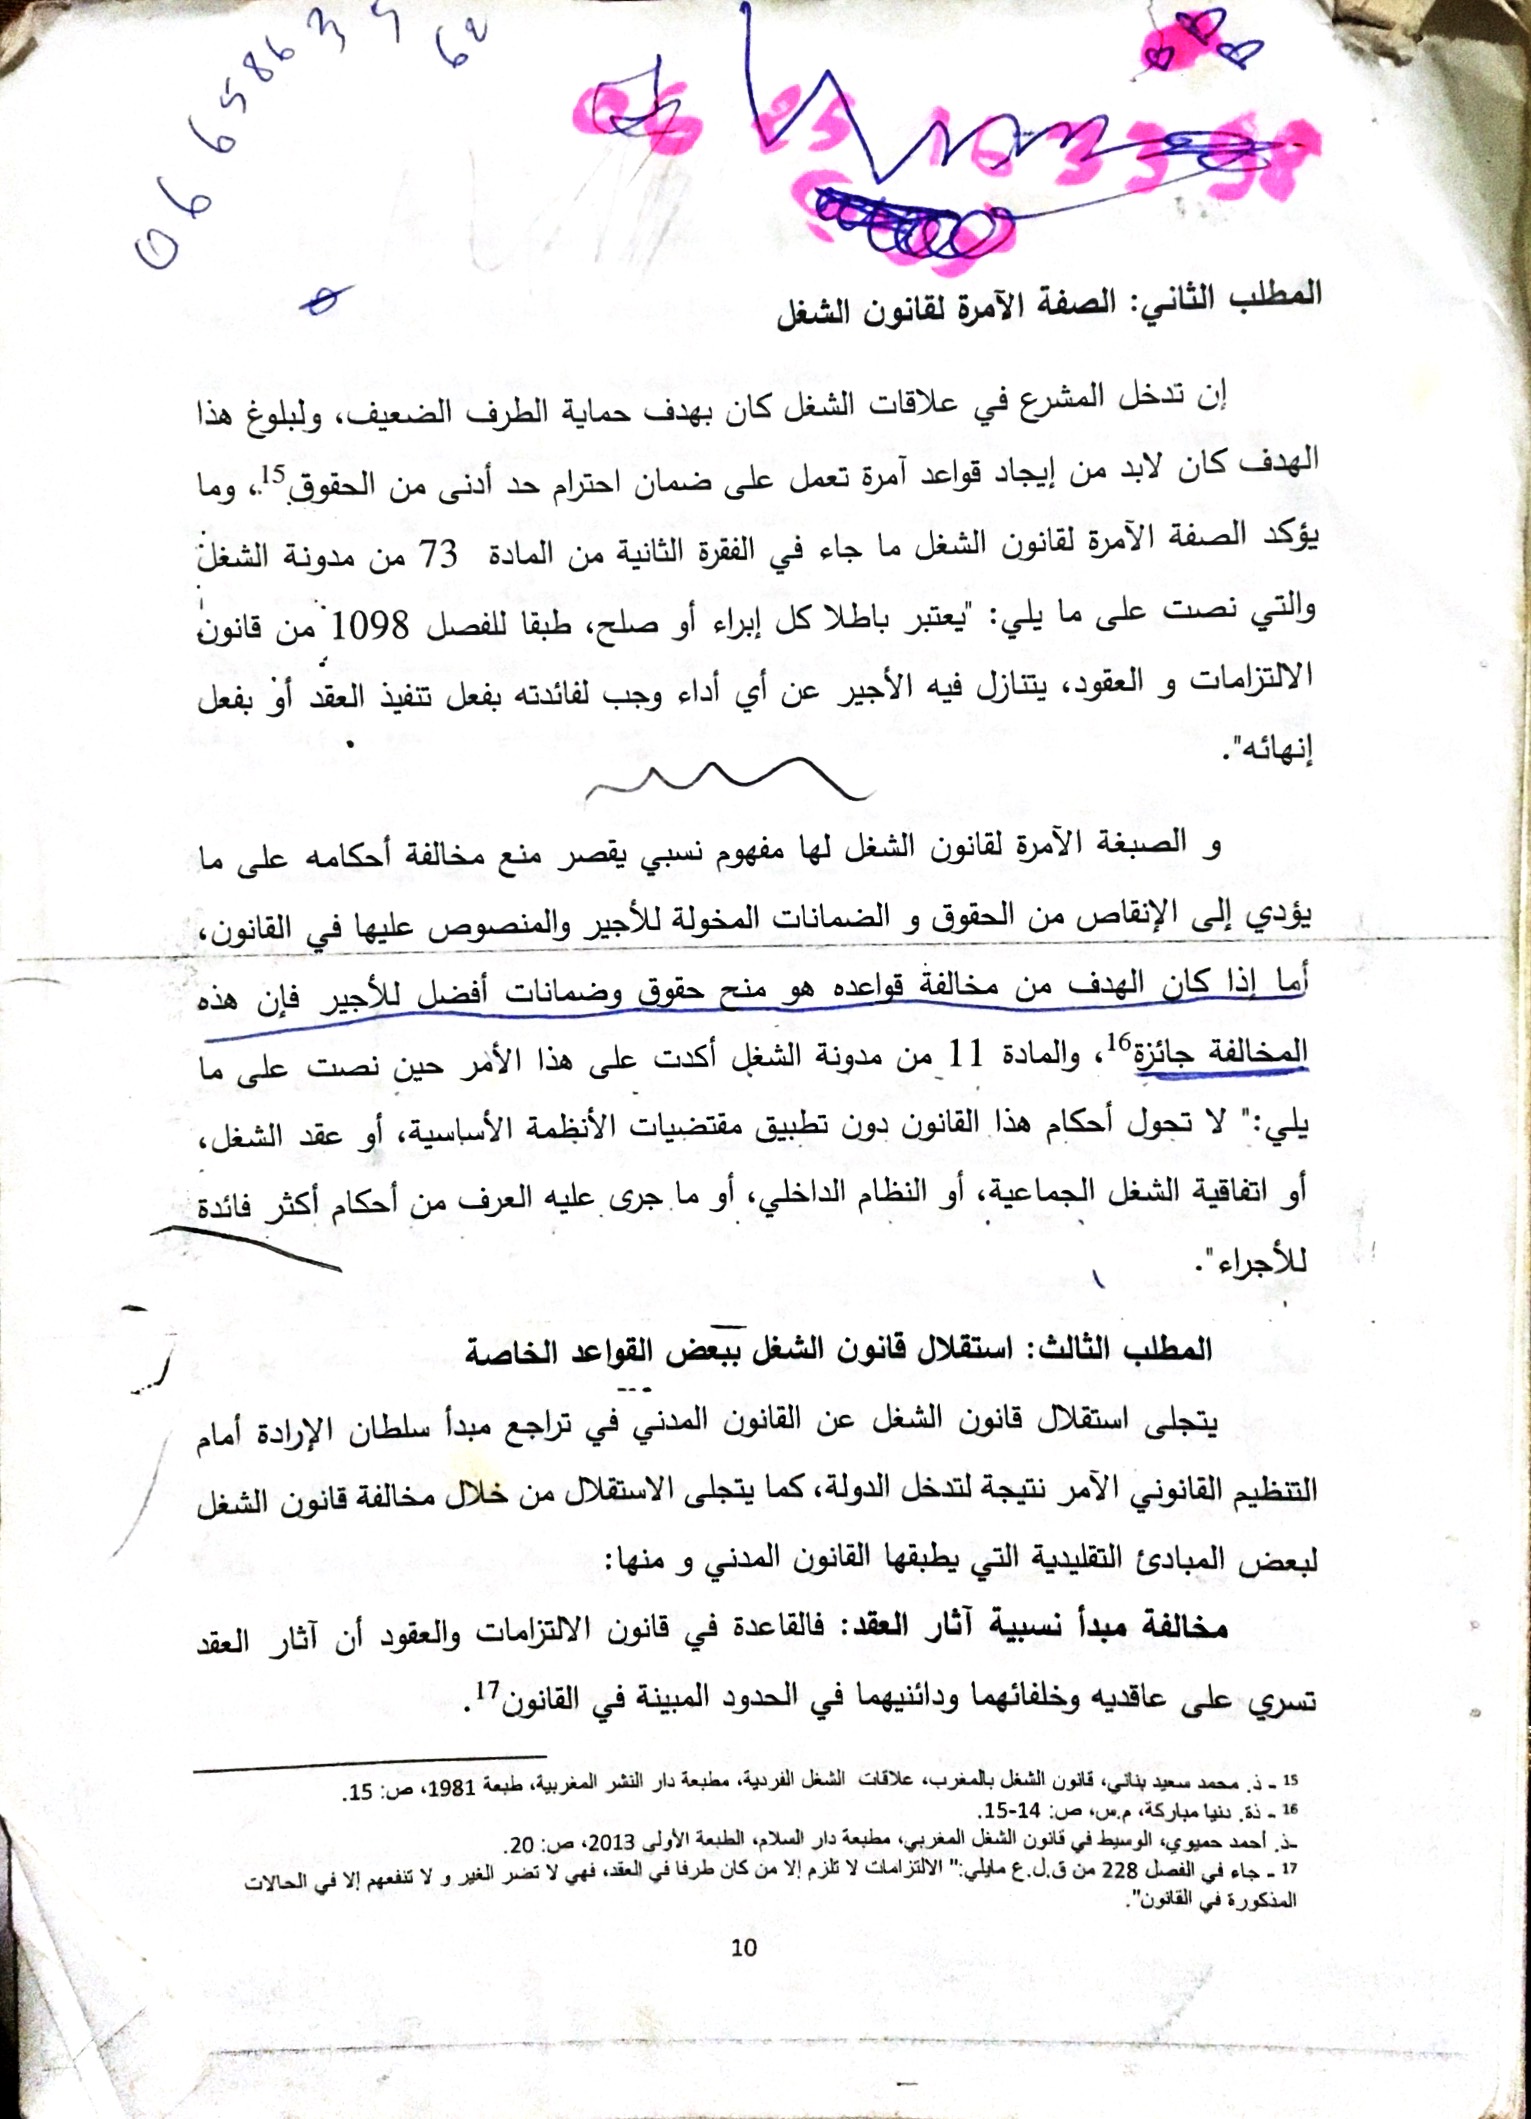 06 65863 5 60
06 25 16 33 98
المطلب الثاني: الصفة الآمرة لقانون الشغل
إن تدخل المشرع في علاقات الشغل كان بهدف حماية الطرف الضعيف، ولبلوغ هذا
الهدف كان لابد من إيجاد قواعد آمرة تعمل على ضمان احترام حد أدنى من الحقوق15، وما
يؤكد الصفة الآمرة لقانون الشغل ما جاء في الفقرة الثانية من المادة 73 من مدونة الشغل
والتي نصت على ما يلي: "يعتبر باطلا كل إبراء أو صلح، طبقا للفصل 1098 من قانون
الالتزامات و العقود، يتنازل فيه الأجير عن أي أداء وجب لفائدته بفعل تنفيذ العقد أو بفعل
إنهائه".
و الصبغة الآمرة لقانون الشغل لها مفهوم نسبي يقصر منع مخالفة أحكامه على ما
يؤدي إلى الإنقاص من الحقوق و الضمانات المخولة للأجير والمنصوص عليها في القانون،
أما إذا كان الهدف من مخالفة قواعده هو منح حقوق وضمانات أفضل للأجير فإن هذه
المخالفة جائزة16، والمادة 11 من مدونة الشغل أكدت على هذا الأمر حين نصت على ما
يلي:" لا تحول أحكام هذا القانون دون تطبيق مقتضيات الأنظمة الأساسية، أو عقد الشغل،
أو اتفاقية الشغل الجماعية، أو النظام الداخلي، أو ما جرى عليه العرف من أحكام أكثر فائدة
للأجراء".
المطلب الثالث: استقلال قانون الشغل ببعض القواعد الخاصة
يتجلى استقلال قانون الشغل عن القانون المدني في تراجع مبدأ سلطان الإرادة أمام
التنظيم القانوني الآمر نتيجة لتدخل الدولة، كما يتجلى الاستقلال من خلال مخالفة قانون الشغل
لبعض المبادئ التقليدية التي يطبقها القانون المدني و منها:
مخالفة مبدأ نسبية آثار العقد: فالقاعدة في قانون الالتزامات والعقود أن آثار العقد
تسري على عاقديه وخلفائهما ودائنيهما في الحدود المبينة في القانون17.
15 - ذ. محمد سعيد بناني، قانون الشغل بالمغرب، علاقات الشغل الفردية، مطبعة دار النشر المغربية، طبعة 1981، ص: 15.
16 - ذة. دنيا مباركة، م.س، ص: 14-15.
-ذ. أحمد حميوي، الوسيط في قانون الشغل المغربي، مطبعة دار السلام، الطبعة الأولى 2013، ص: 20.
17 - جاء في الفصل 228 من ق.ل.ع مايلي:" الالتزامات لا تلزم إلا من كان طرفا في العقد، فهي لا تضر الغير و لا تنفعهم إلا في الحالات
المذكورة في القانون".
10